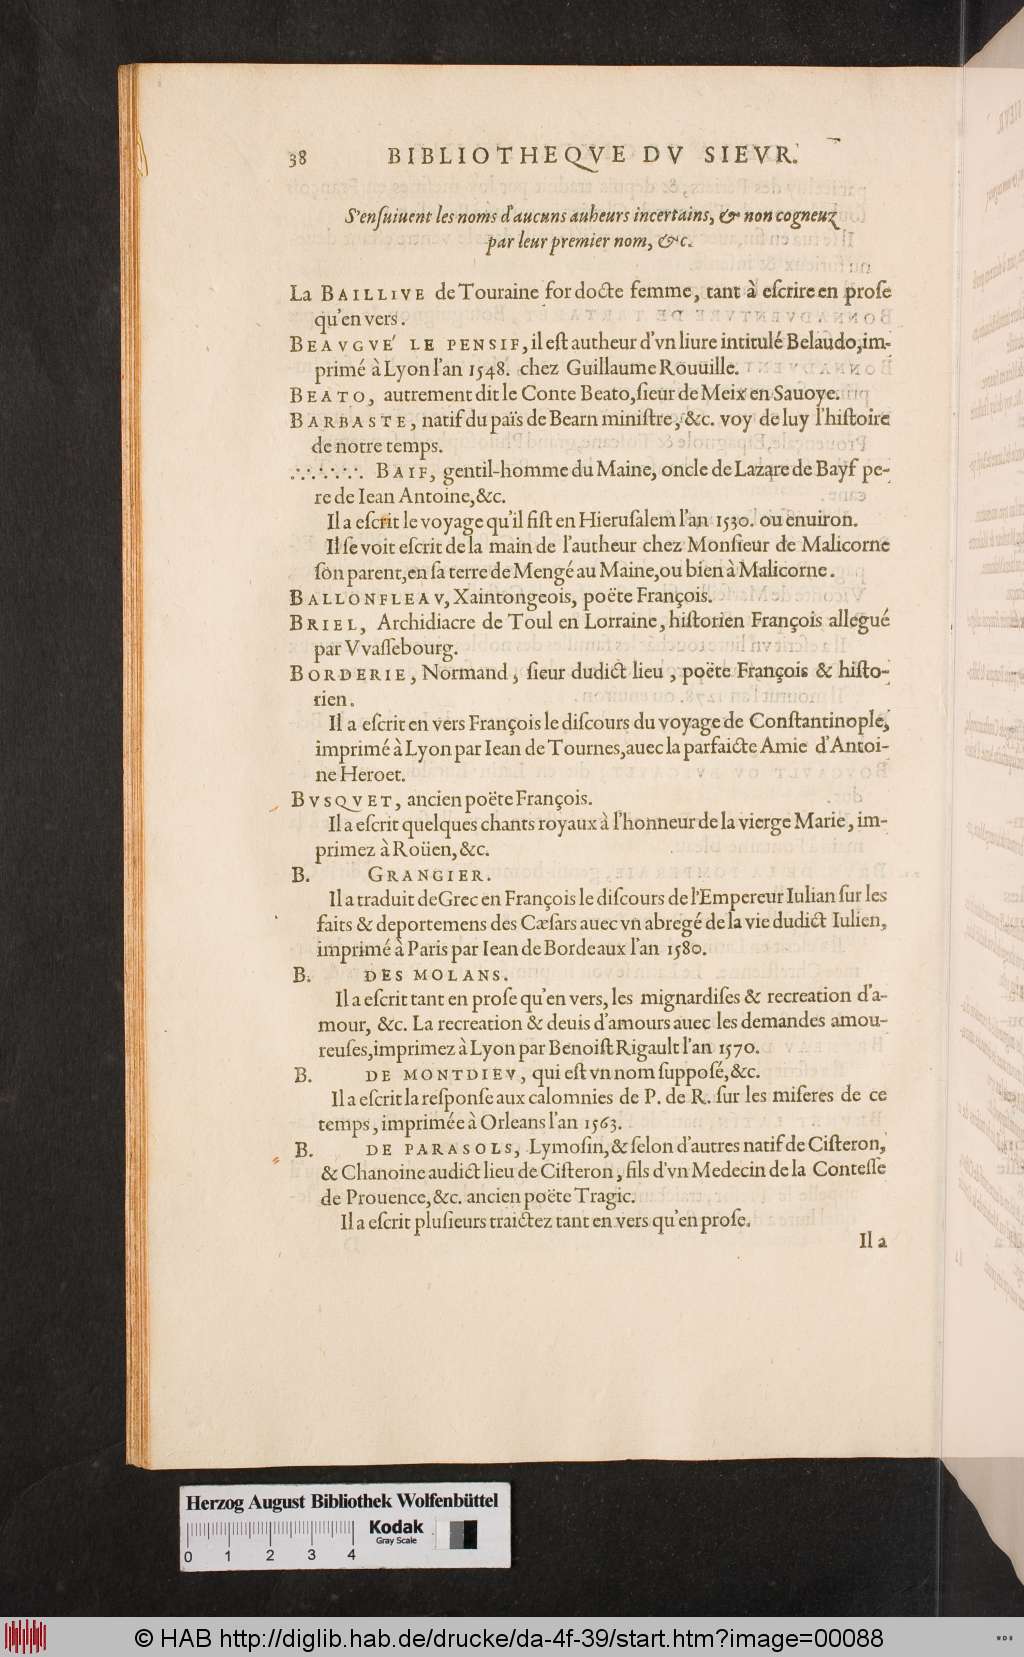 38 BIBLIOTHEQVE DV SIEVR.
S'enſuiuent les noms d'aucuns auheurs incertains, & non cogneuz
par leur premier nom, &c.
La BAILLIVE de Touraine for docte femme, tant à eſcrire en proſe
qu'en vers.
BEAVGVE' LE PENSIF, il eſt autheur d'vn liure intitulé Belaudo, im-
primé à Lyon l'an 1548. chez Guillaume Rouuille.
BEATO, autrement dit le Conte Beato, ſieur de Meix en Sauoye.
BARBASTE, natif du païs de Bearn miniſtre, &c. voy de luy l'hiſtoire
de notre temps.
∴∵∴∵. BAIF, gentil-homme du Maine, oncle de Lazare de Bayf pe-
re de Iean Antoine, &c.
Il a eſcrit le voyage qu'il fiſt en Hieruſalem l'an 1530. ou enuiron.
Il ſe voit eſcrit de la main de l'autheur chez Monſieur de Malicorne
ſon parent, en ſa terre de Mengé au Maine, ou bien à Malicorne.
BALLONFLEAV, Xaintongeois, poëte François.
BRIEL, Archidiacre de Toul en Lorraine, hiſtorien François allegué
par Vvaſſebourg.
BORDERIE, Normand, ſieur dudict lieu, poëte François & hiſto-
rien.
Il a eſcrit en vers François le diſcours du voyage de Conſtantinople,
imprimé à Lyon par Iean de Tournes, auec la parfaicte Amie d'Antoi-
ne Heroet.
BVSQVET, ancien poëte François.
Il a eſcrit quelques chants royaux à l'honneur de la vierge Marie, im-
primez à Roüen, &c.
B. GRANGIER.
Il a traduit de Grec en François le diſcours de l'Empereur Iulian ſur les
faits & deportemens des Cæſars auec vn abregé de la vie dudict Iulien,
imprimé à Paris par Iean de Bordeaux l'an 1580.
B. DES MOLANS.
Il a eſcrit tant en proſe qu'en vers, les mignardiſes & recreation d'a-
mour, &c. La recreation & deuis d'amours auec les demandes amou-
reuſes, imprimez à Lyon par Benoiſt Rigault l'an 1570.
B. DE MONTDIEV, qui eſt vn nom ſuppoſé, &c.
Il a eſcrit la reſponſe aux calomnies de P. de R. ſur les miſeres de ce
temps, imprimée à Orleans l'an 1563.
B. DE PARASOLS, Lymoſin, & ſelon d'autres natif de Ciſteron,
& Chanoine audict lieu de Ciſteron, fils d'vn Medecin de la Conteſſe
de Prouence, &c. ancien poëte Tragic.
Il a eſcrit pluſieurs traictez tant en vers qu'en proſe.
Il a
Herzog August Bibliothek Wolfenbüttel
Kodak
Gray Scale
0 1 2 3 4
© HAB http://diglib.hab.de/drucke/da-4f-39/start.htm?image=00088